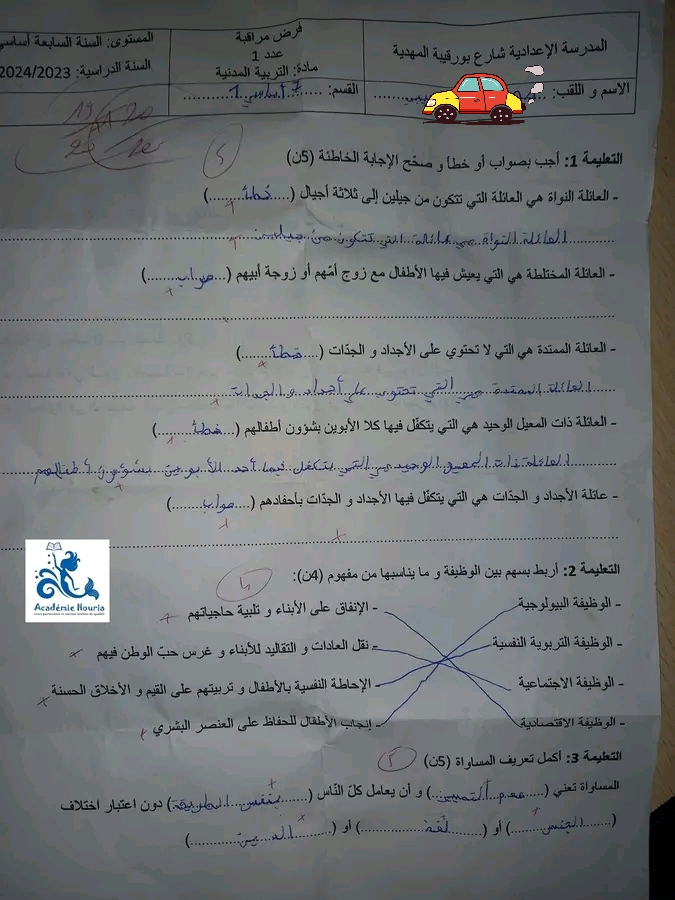 المدرسة الإعدادية شارع بورقيبة المهدية
فرض مراقبة
عدد 1
مادة: التربية المدنية
المستوى: السنة السابعة أساسي
السنة الدراسية: 2024/2023
الاسم و اللقب:
القسم: 7 أساسي 1
التعليمة 1: أجب بصواب أو خطأ و صحّح الإجابة الخاطئة (5ن)
- العائلة النواة هي العائلة التي تتكون من جيلين إلى ثلاثة أجيال (خطأ)
العائلة النواة هي عائلة التي تتكون من جيلين
- العائلة المختلطة هي التي يعيش فيها الأطفال مع زوج أمّهم أو زوجة أبيهم (صواب)
- العائلة الممتدة هي التي لا تحتوي على الأجداد و الجدّات (خطأ)
العائلة الممتدة هي التي تحتوي على أجداد و الجدات
- العائلة ذات المعيل الوحيد هي التي يتكفّل فيها كلا الأبوين بشؤون أطفالهم (خطأ)
العائلة ذات المعيل الوحيد هي التي يتكفل فيها أحد الأبوين بشؤون أطفالهم
- عائلة الأجداد و الجدّات هي التي يتكفّل فيها الأجداد و الجدّات بأحفادهم (صواب)
Académie Houria
التعليمة 2: أربط بسهم بين الوظيفة و ما يناسبها من مفهوم (4ن):
- الوظيفة البيولوجية - الإنفاق على الأبناء و تلبية حاجياتهم
- الوظيفة التربوية النفسية - نقل العادات و التقاليد للأبناء و غرس حبّ الوطن فيهم
- الوظيفة الاجتماعية - الإحاطة النفسية بالأطفال و تربيتهم على القيم و الأخلاق الحسنة
- الوظيفة الاقتصادية - إنجاب الأطفال للحفاظ على العنصر البشري
التعليمة 3: أكمل تعريف المساواة (5ن)
المساواة تعني (عدم التمييز) و أن يعامل كلّ النّاس (بنفس الطريقة) دون اعتبار اختلاف
(الجنس) أو (لغة) أو (الدين)